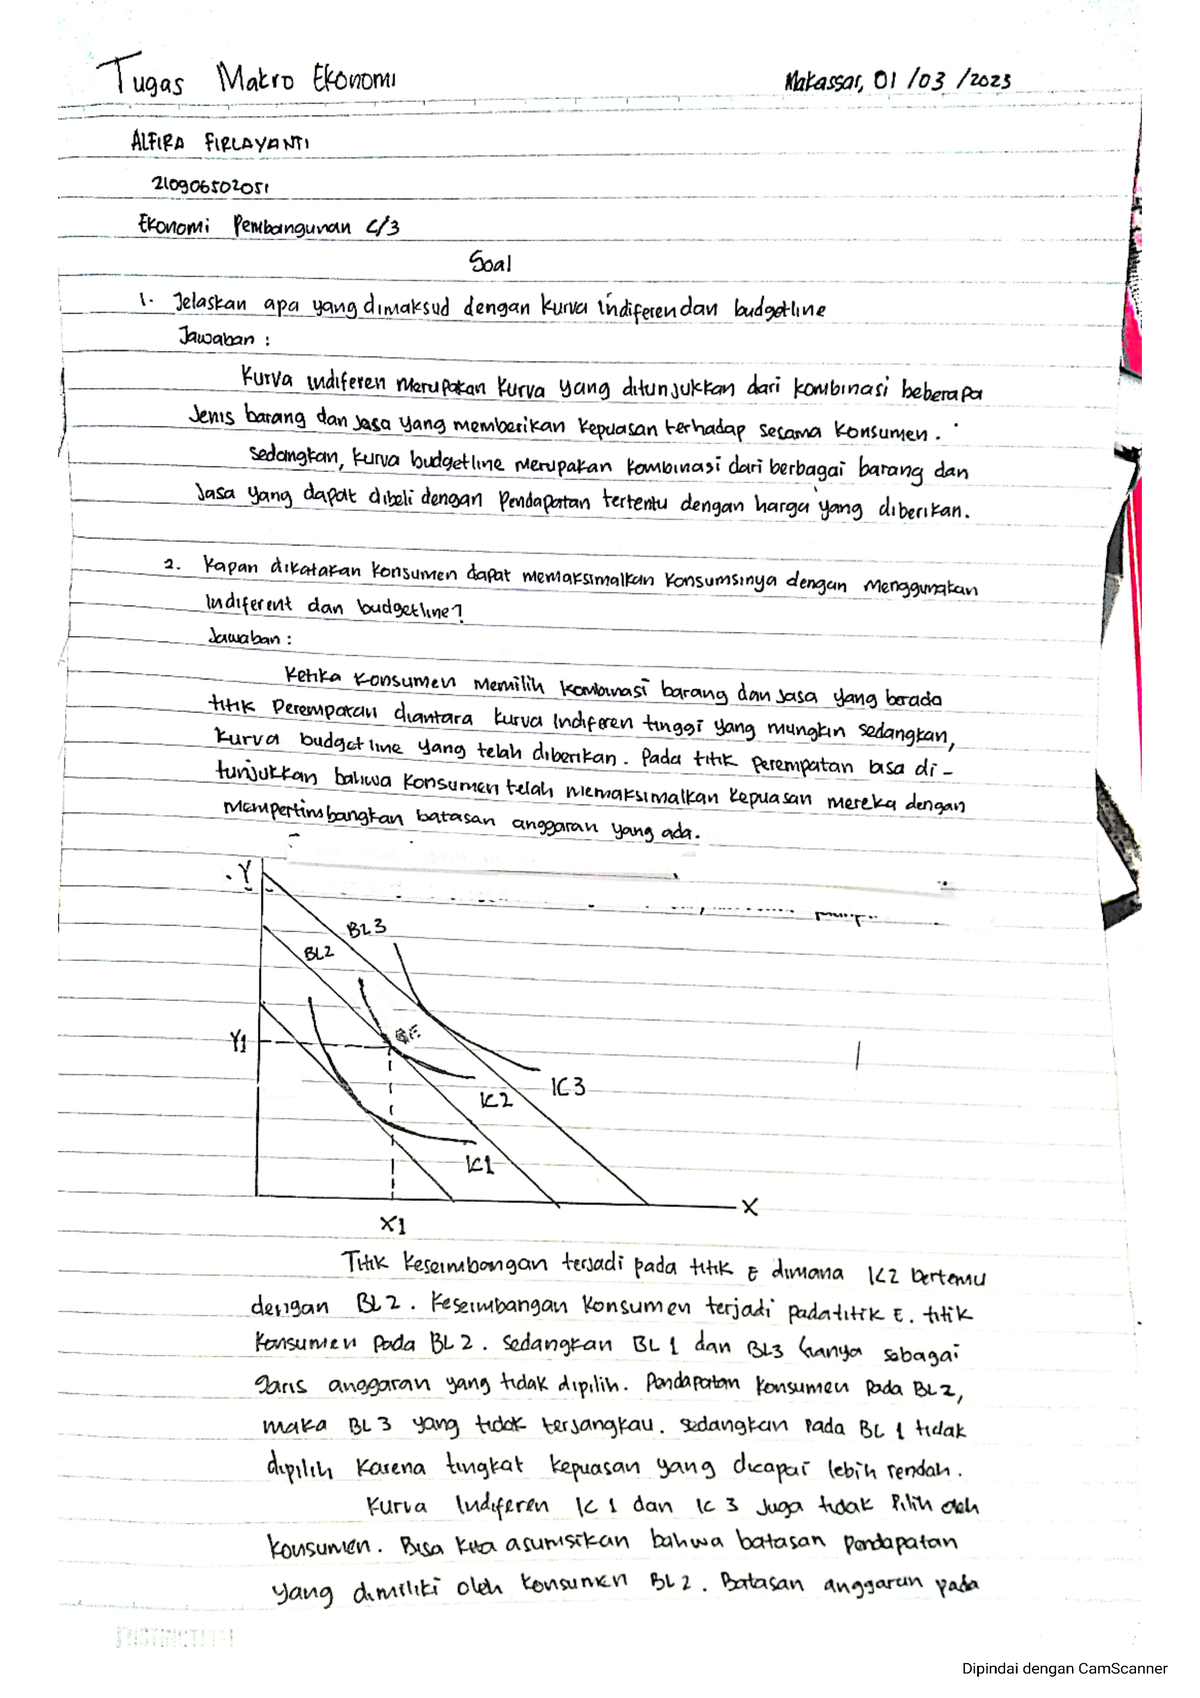 Tugas Makro Ekonomi
Makassar, 01/03/2023
ALFIRA FIRLAYANTI
210906502051
Ekonomi Pembangunan C/3
Soal
1. Jelaskan apa yang dimaksud dengan kurva indiferen dan budgetline
Jawaban :
Kurva indiferen merupakan kurva yang ditunjukkan dari kombinasi beberapa
Jenis barang dan jasa yang memberikan kepuasan terhadap sesama konsumen.
Sedangkan, kurva budgetline merupakan kombinasi dari berbagai barang dan
Jasa yang dapat dibeli dengan pendapatan tertentu dengan harga yang diberikan.
2. Kapan dikatakan konsumen dapat memaksimalkan konsumsinya dengan menggunakan
Indiferent dan budgetline?
Jawaban :
Ketika konsumen memilih kombinasi barang dan jasa yang berada
titik perempatan diantara kurva indiferen tinggi yang mungkin sedangkan,
kurva budgetline yang telah diberikan. Pada titik perempatan bisa di-
tunjukkan bahwa konsumen telah memaksimalkan kepuasan mereka dengan
mempertimbangkan batasan anggaran yang ada.
Y
BL3
BL2
Y1
IC3
IC2
IC1
X
X1
Titik keseimbangan terjadi pada titik E dimana IC2 bertemu
dengan BL2. Keseimbangan konsumen terjadi pada titik E. titik
konsumen pada BL2. Sedangkan BL1 dan BL3 hanya sebagai
garis anggaran yang tidak dipilih. Pendapatan konsumen pada BL2,
maka BL3 yang tidak terjangkau. Sedangkan pada BL1 tidak
dipilih karena tingkat kepuasan yang dicapai lebih rendah.
Kurva Indiferen IC1 dan IC3 Juga tidak Pilih oleh
konsumen. Bisa kita asumsikan bahwa batasan pendapatan
yang dimiliki oleh konsumen BL2. Batasan anggaran pada
Dipindai dengan CamScanner